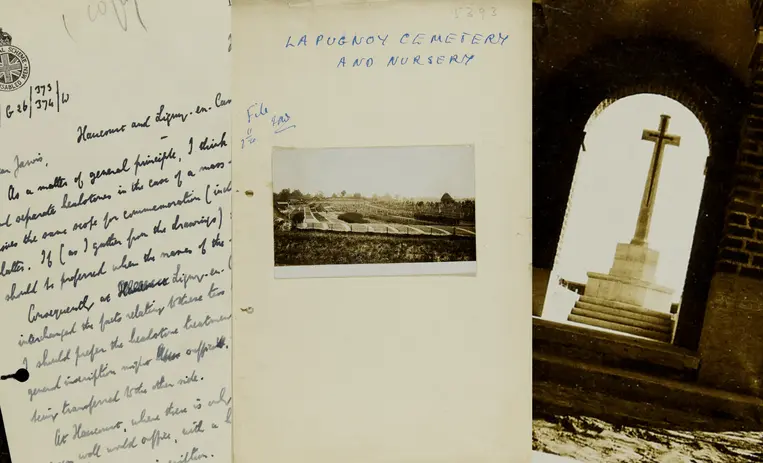 (copy)
G 26/373/374/W
Haucourt and Ligny-en-Cau
an Jarvis,
As a matter of general principle, I think
nd separate headstones in the case of a mass-
gives the same scope for commemoration (incl
latter. If (as I gather from the drawings)
should be preferred when the names of the
Consequently at Ligny-en-C
interchanged the facts relating to these two
I should prefer the headstone treatment
general inscription might suffice,
being transferred to the other side.
At Haucourt, where there is only
wall would suffice, with a
inscription.
5393
LAPUGNOY CEMETERY
AND NURSERY
File